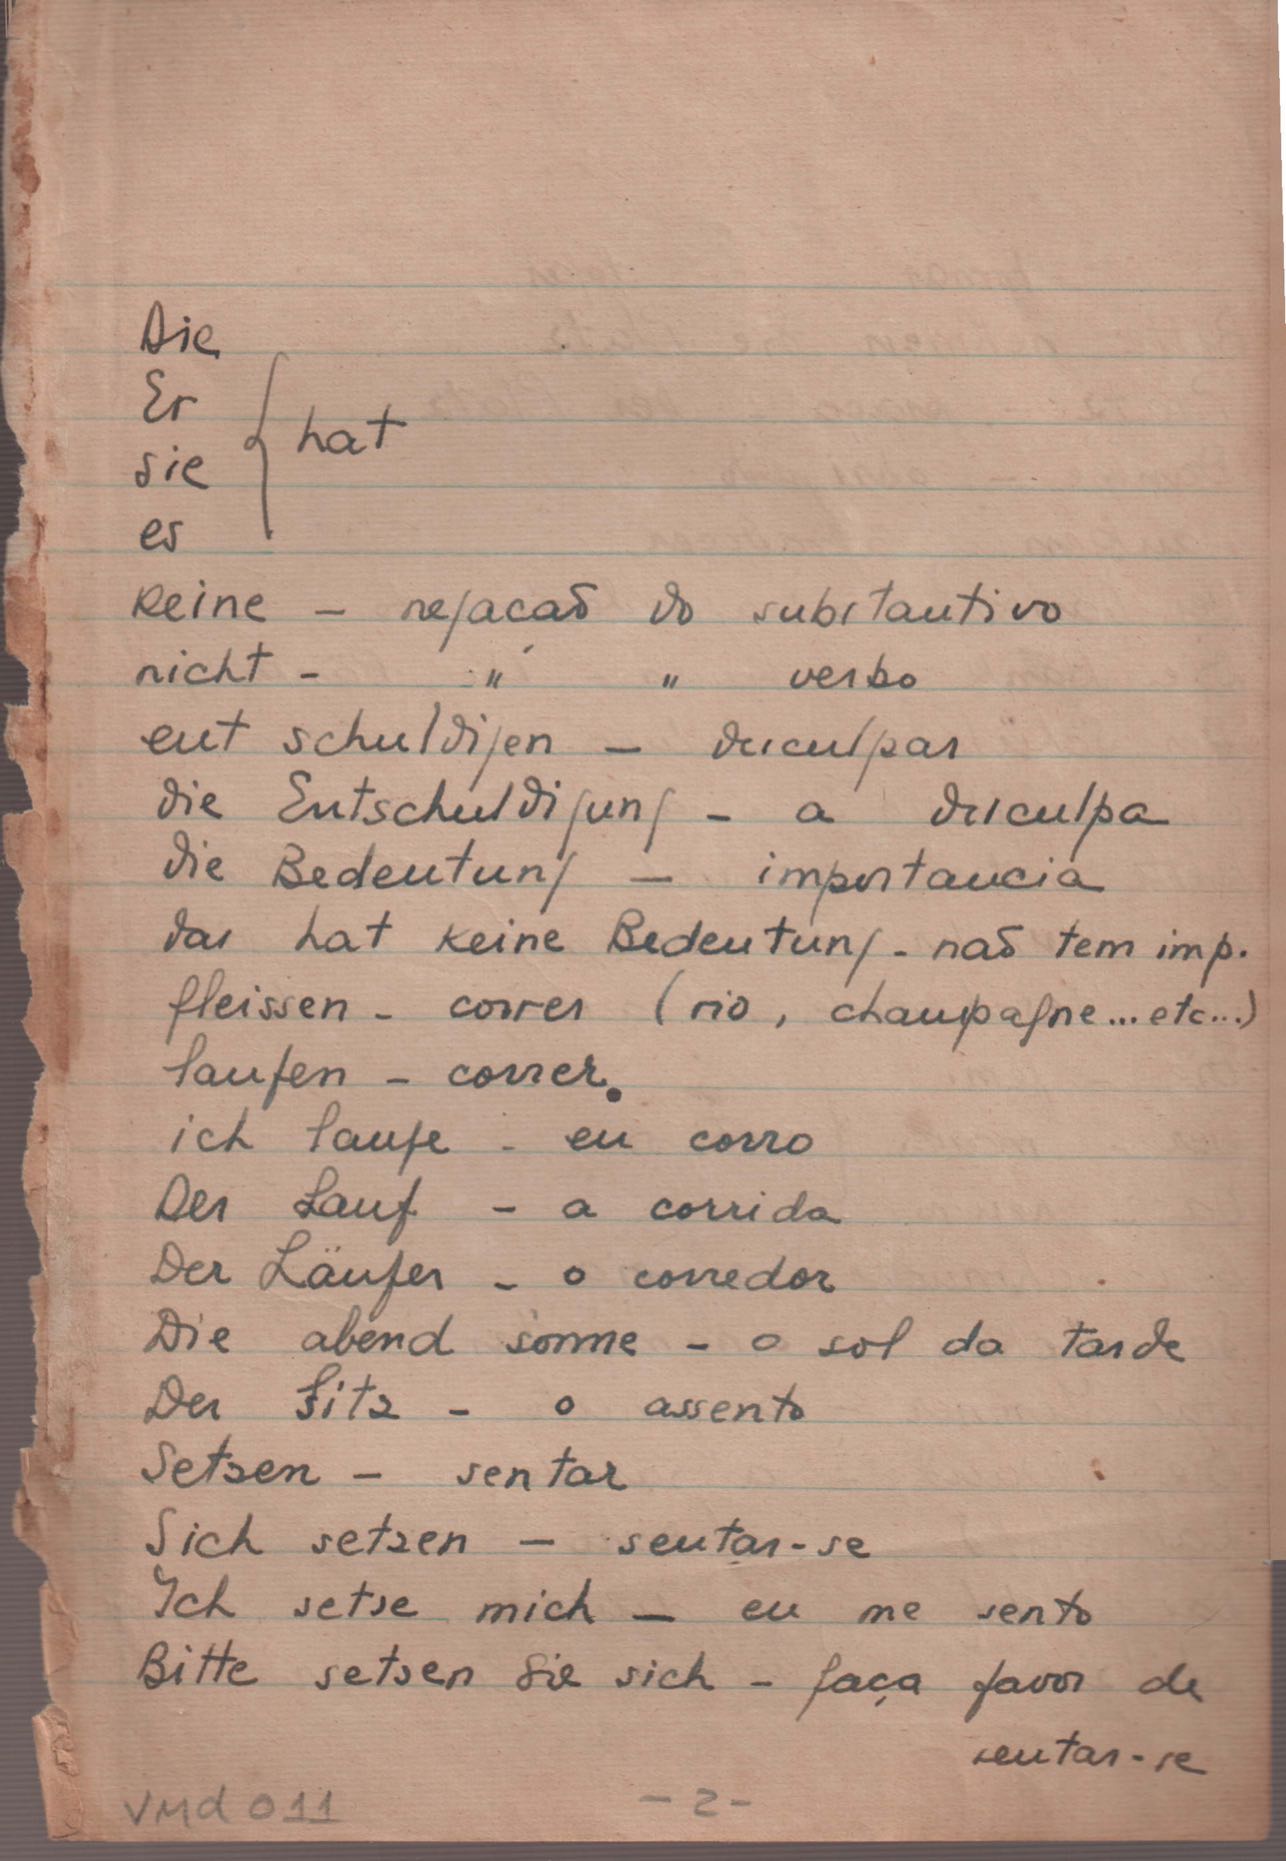 Die
Er
sie
es
hat
keine - negaçaõ do substantivo
nicht - " " verbo
ent schuldigen - desculpar
die Entschuldigung - a desculpa
die Bedeutung - importancia
das hat keine Bedeutung - naõ tem imp.
fleissen - correr (rio, champagne...etc...)
laufen - correr.
ich laufe - eu corro
Der Lauf - a corrida
Der Läufer - o corredor
Die abend sonne - o sol da tarde
Der Sitz - o assento
Setzen - sentar
Sich setzen - sentar-se
Ich setse mich - eu me sento
Bitte setsen Sie sich - faça favor de
sentar-se
VMd 011
- 2 -